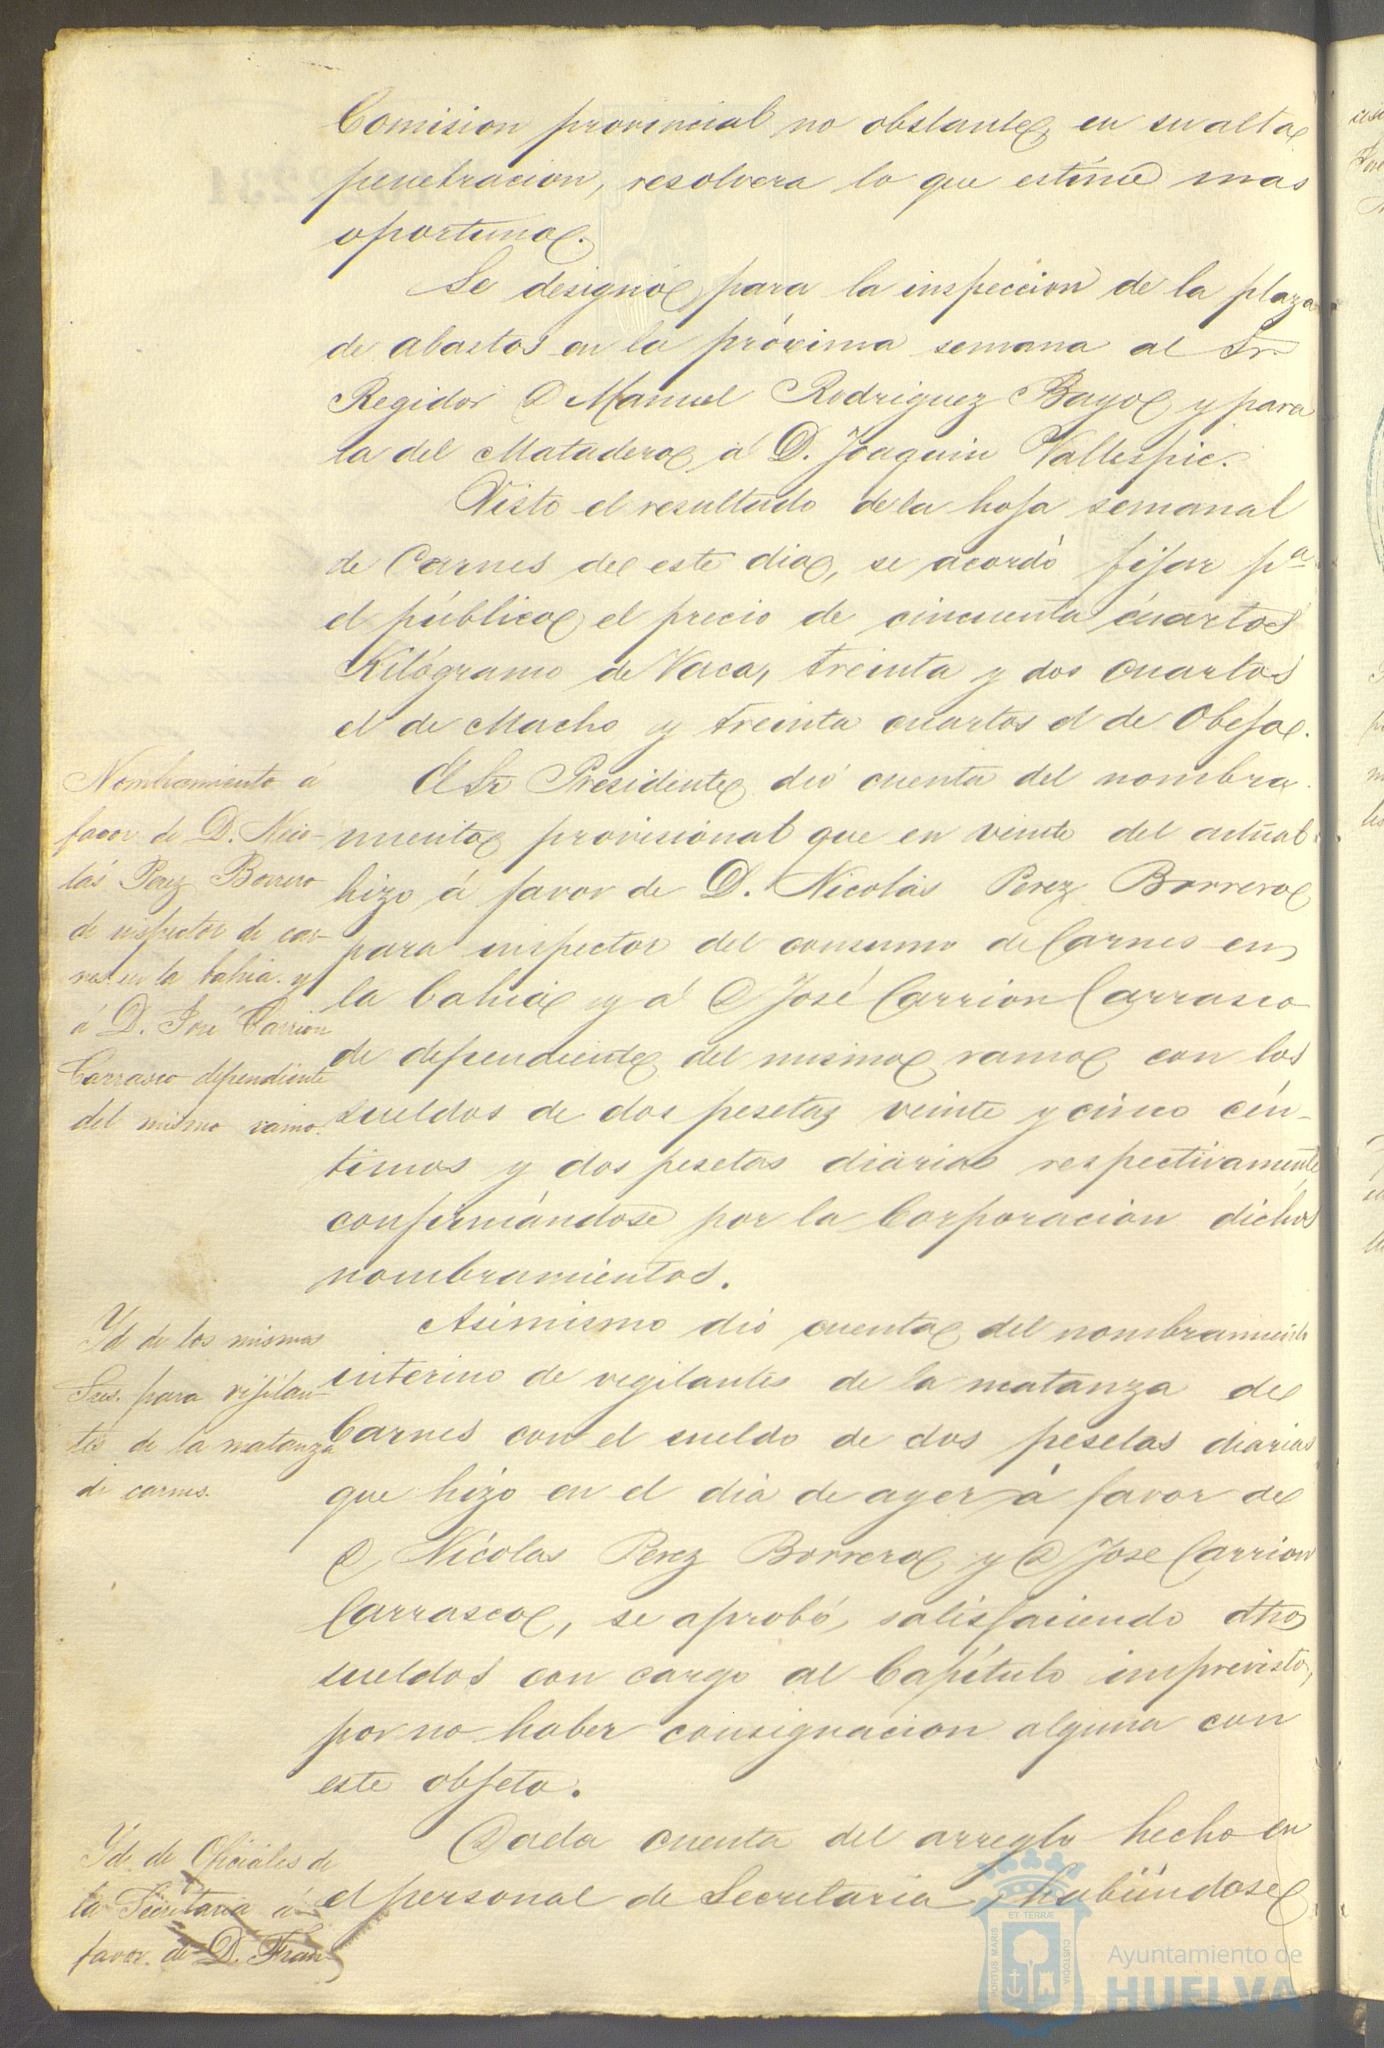 Comision provincial no obstante, en su alta
penetracion, resolvera lo que estime mas
oportuno.
Se designó para la inspeccion de la plaza
de abastos en la próxima semana al Sr.
Regidor D Manuel Rodriguez Bayo y para
la del Matadero á D. Joaquin Vallespic.
Visto el resultado de la hoja semanal
de Carnes de este dia, se acordó fijar pª
el público el precio de cincuenta cuartos
Kilógramo de Vaca, treinta y dos cuartos
el de Macho y treinta cuartos el de Obeja.
Nombramiento á
favor de D. Nico-
lás Perez Borrero
de inspector de car-
nes en la bahia y
á D. José Carrion
Carrasco dependiente
del mismo ramo.
El Sr Presidente dió cuenta del nombra-
miento provisional que en veinte del actual
hizo á favor de D. Nicolás Perez Borrero
para inspector del consumo de Carnes en
la bahia y á D José Carrion Carrasco
de dependiente del mismo ramo con los
sueldos de dos pesetas veinte y cinco cén-
timos y dos pesetas diarias respectivamente
confirmándose por la Corporacion dichos
nombramientos.
Yd de los mismos
Sres. para vijilan-
tes de la matanza
de carnes.
Asimismo dió cuenta del nombramiento
interino de vegilantes de la matanza de
Carnes con el sueldo de dos pesetas diarias
que hizo en el dia de ayer á favor de
D Nicolas Perez Borrero y D Jose Carrion
Carrasco, se aprobó, satisfaciendo dhos
sueldos con cargo al Capítulo imprevistos,
por no haber consignacion alguna con
este objeto.
Yd. de Oficiales de
la Secretaria á
favor de D. Fran
Dada cuenta del arreglo hecho en
el personal de Secretaria, habiéndose
PORTUS MARIS
ET TERRÆ
CUSTODIA
Ayuntamiento de
HUELVA